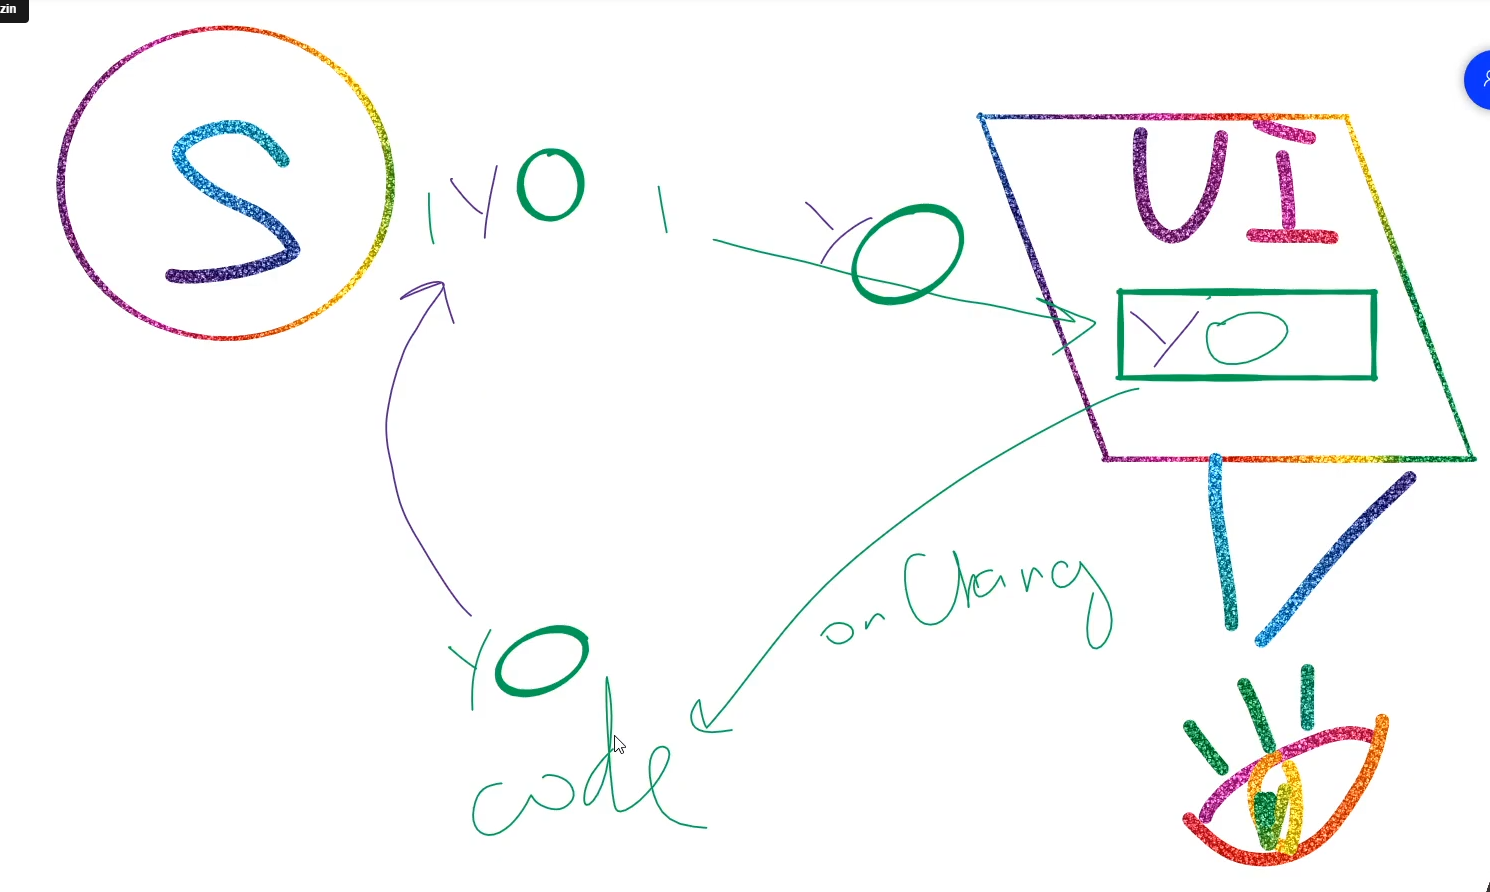 zin
S
YO
YO
UI
YO
on Chang
YO
code